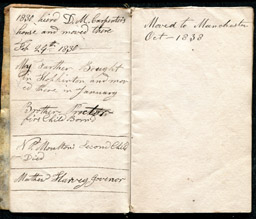 1830 hierd D. M. Carpenters
house and moved there
Feb 24th 1830
My Farther Bought
in Hopkinton and mov
ed there in January
Brothers Proctor
firs Child Born
N P Moulton Second Child
Died
Mathew Harvey governor
Moved to Manchester
Oct - 1838